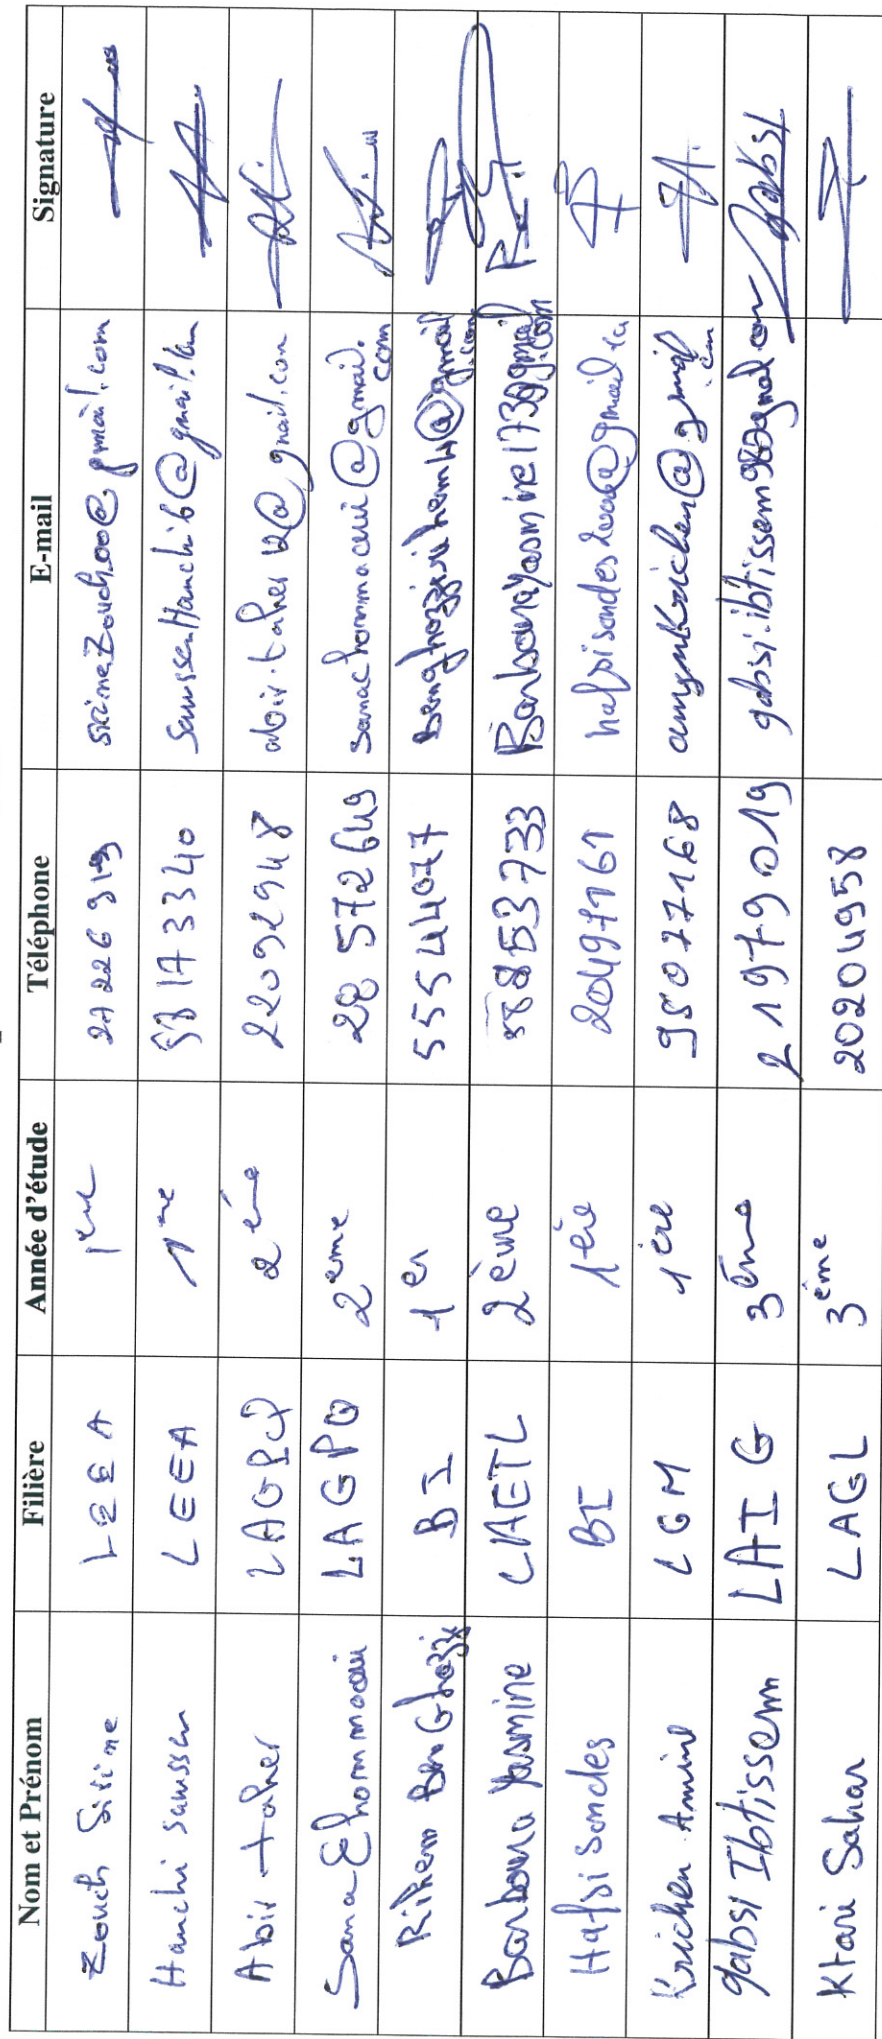 Nom et Prénom Filière Année d'étude Téléphone E-mail Signature
Zouch Sirine LEEA 1ère 27226919 sirinezouch00@gmail.com
Hamchi Sawssen LEEA 1ère 58173340 SawssenHamchi6@gmail.com
Abir taher LAGPQ 2éme 22092948 abir.taher12@gmail.com
Sana Ehommacui LAGPQ 2eme 28572649 sanaehommacui@gmail.com
Rihem Ben Ghozzi BI 1er 55544077 Benghozzirihem14@gmail.com
Barboura Yasmine LAETL 2ème 58853733 Barbourayasmine173@gmail.com
Hafsi Sondes BI 1ère 20497161
Krichen Amine LGM 1ère 95077168 aminekrichen@gmail.com
gabsi Ibtissem LAIG 3éme 21979019 gabsi.ibtissem98@gmail.com gabsi
Ktari Sahar LAGL 3éme 20204958